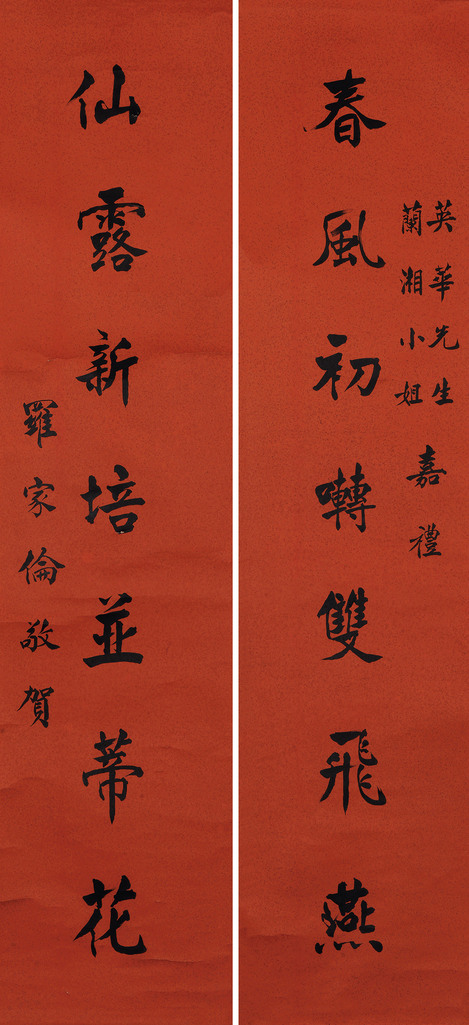 英華先生
蘭湘小姐
嘉禮
春風初囀雙飛燕
仙露新培並蒂花
羅家倫敬賀